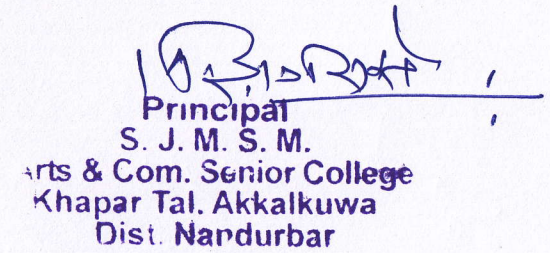 Principal
S. J. M. S. M.
rts & Com. Senior College
Khapar Tal. Akkalkuwa
Dist. Nandurbar